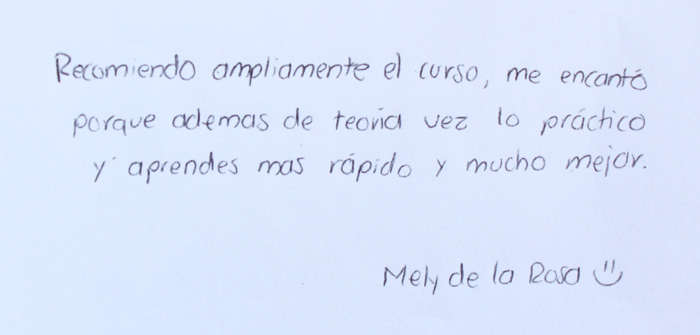 Recomiendo ampliamente el curso, me encantó
porque ademas de teoria vez lo práctico
y aprendes mas rápido y mucho mejor.
Mely de la Rosa